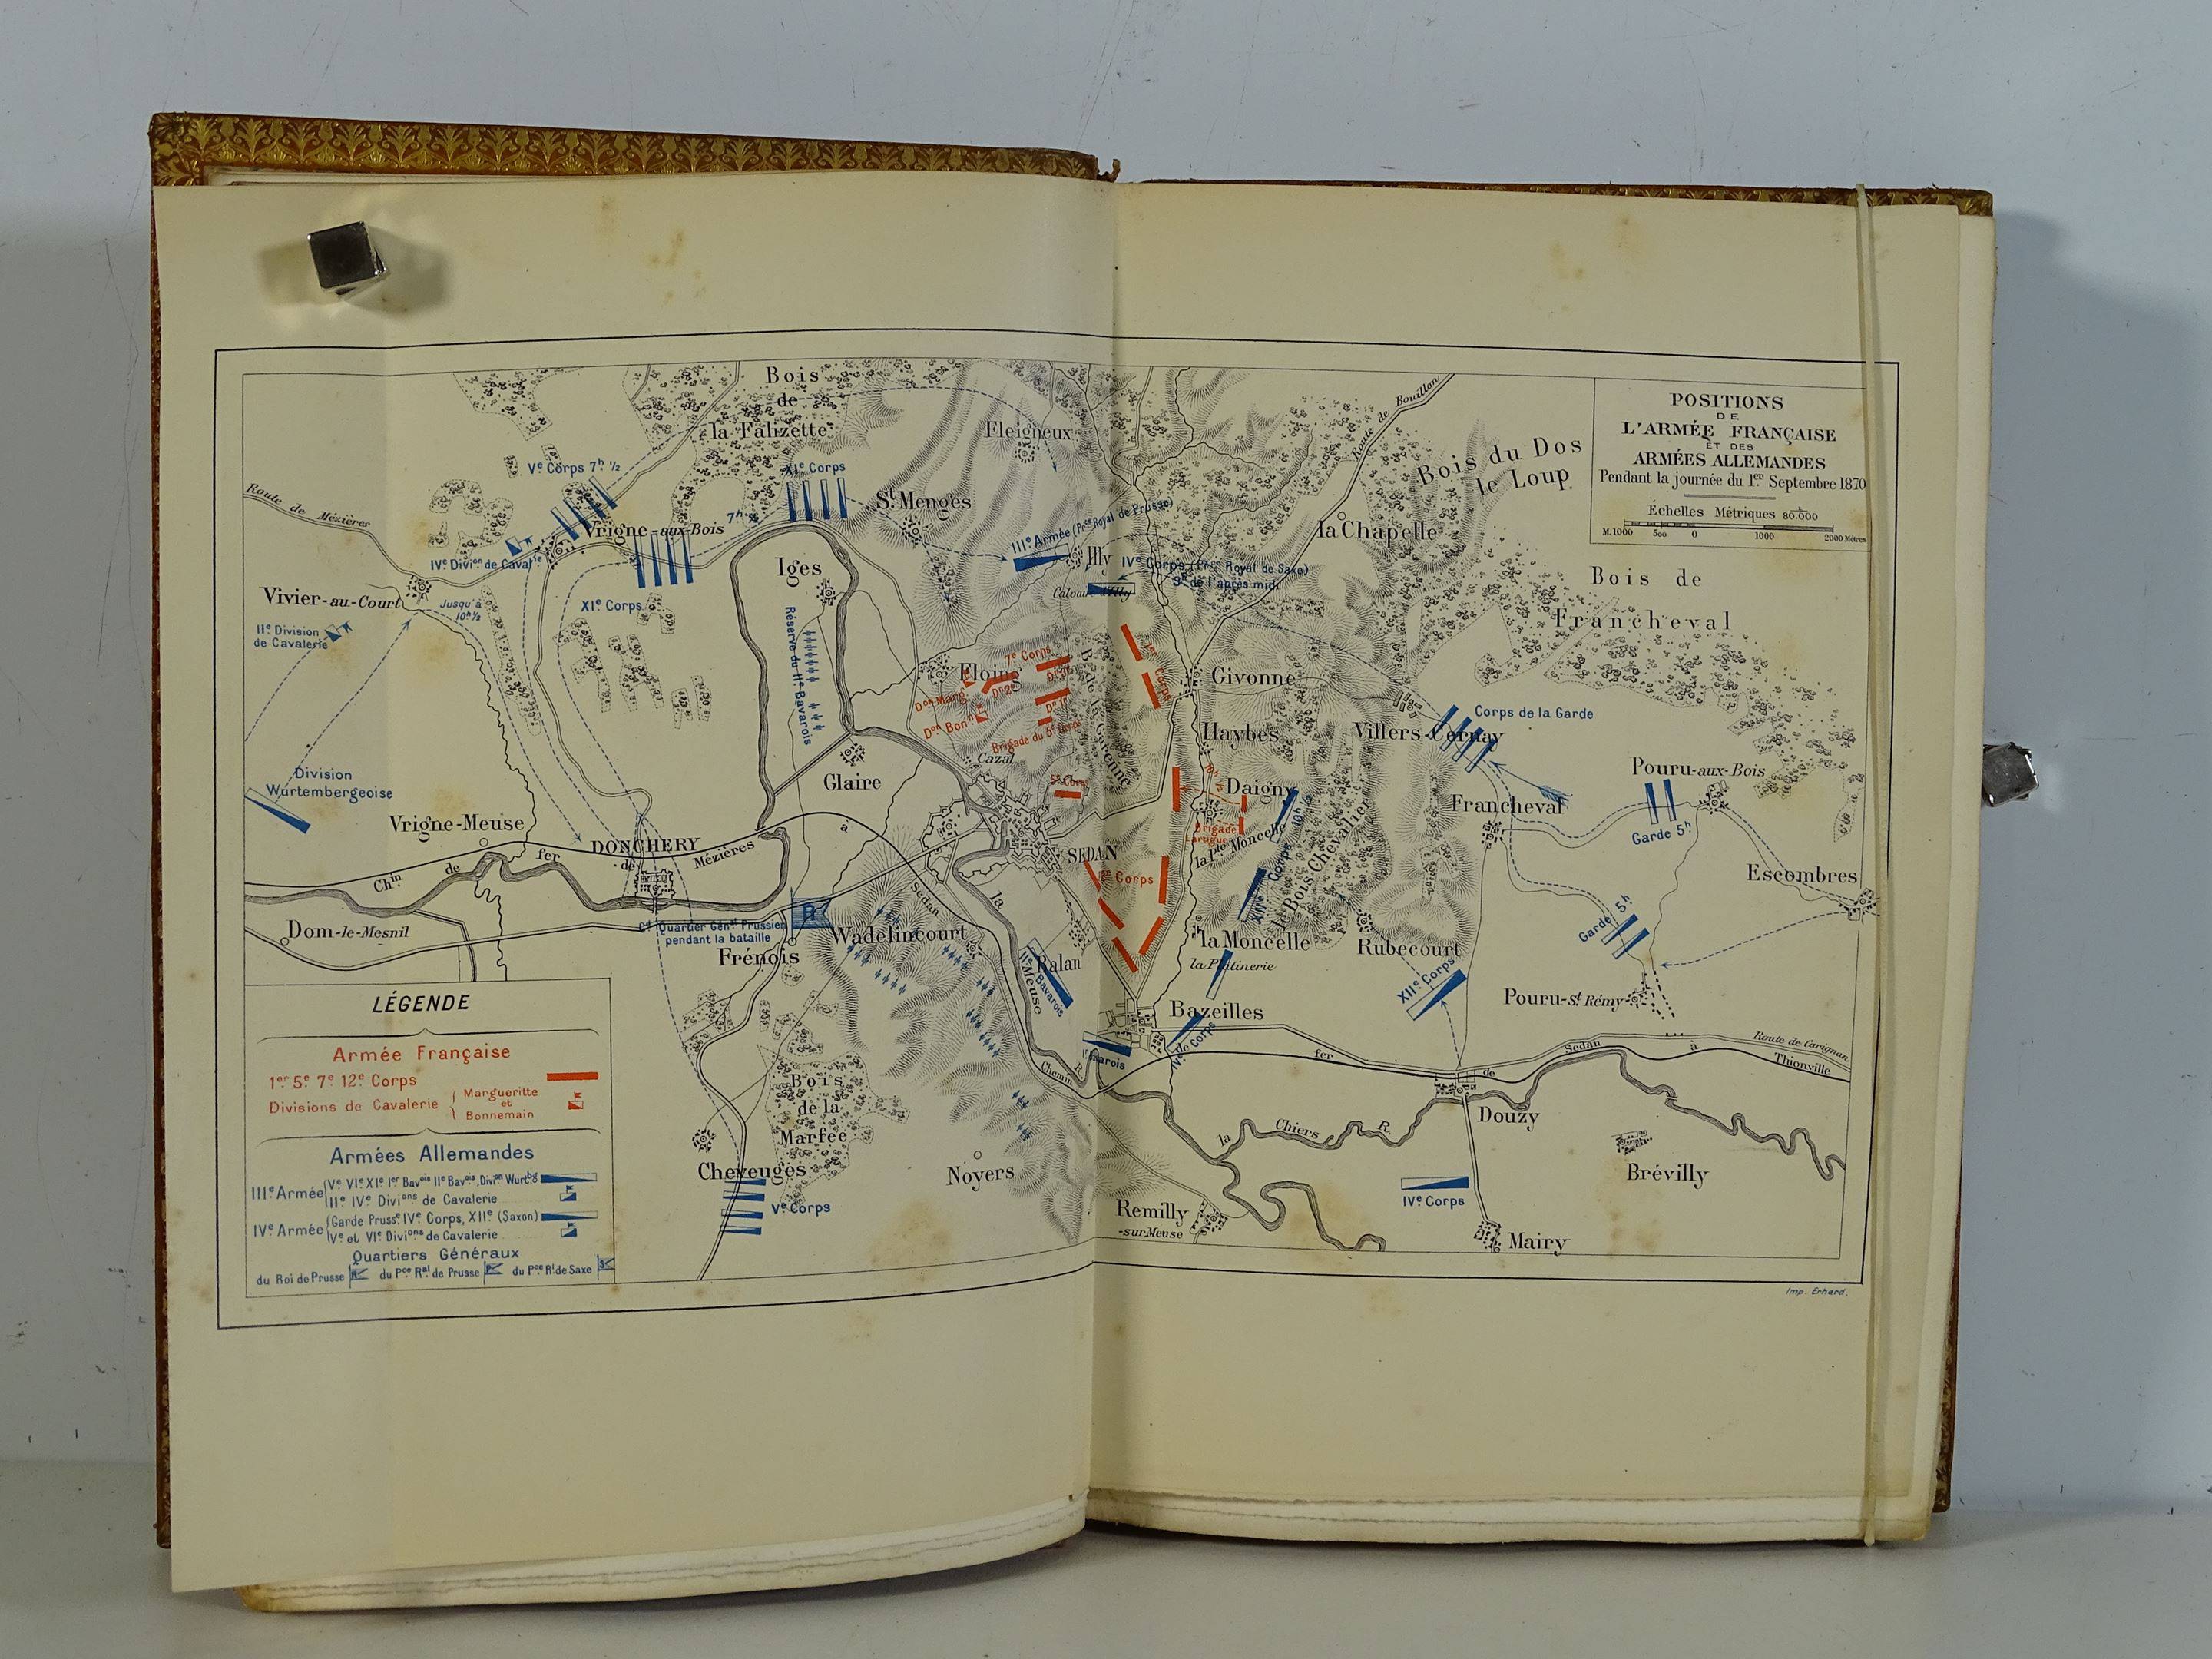 POSITIONS
DE
L'ARMÉE FRANÇAISE
ET DES
ARMÉES ALLEMANDES
Pendant la journée du 1er Septembre 1870
Échelles Métriques 80.000
M.1000 500 0 1000 2000 Mètres
Bois
de
la Falizette
Fleigneux
Route de Bouillon
Bois du Dos
le Loup
Ve Corps 7h ½
XIe Corps
St Menges
Route de Mézières
Vrigne-aux-Bois
IVe Divion de Cavalie
la Chapelle
IIIe Armée (Pce Royal de Prusse)
Illy
IVe Corps (Pce Royal de Saxe)
3h de l'après midi
Calvaire d'Illy
Iges
Vivier-au-Court
Jusqu'à
10h½
XIe Corps
IIe Division
de Cavalerie
Réserve du IIe Bavarois
Bois de
Francheval
Floing
7e Corps
Don Marg
Don Bonn
Brigade du 5e Corps
Bois de la Garenne
1er Corps
Givonne
Cazal
5e Corps
Haybes
Villers-Cernay
Corps de la Garde
Division
Wurtembergeoise
Glaire
Daigny
Francheval
Pouru-aux-Bois
Garde 5h
Vrigne-Meuse
DONCHERY
Chin de fer de Mézières à Sedan
SEDAN
Brigade
Lartigue
la Pte Moncelle
12e Corps
XIIe Corps
10h
le Bois Chevalier
Escombres
Garde 5h
Dom-le-Mesnil
R
Gd Quartier Génal Prussien
pendant la bataille
Frénois
Wadelincourt
la Meuse
Balan
IIe Bavarois
la Moncelle
la Platinerie
Rubécourt
XIIe Corps
Pouru-St Rémy
Bazeilles
Ier Bavarois
IVe Corps
Chemin de fer de Sedan à Thionville
Route de Carignan
LÉGENDE
Armée Française
1er 5e 7e 12e Corps
Divisions de Cavalerie { Margueritte
et
Bonnemain
Armées Allemandes
IIIe Armée { Ve VIe XIe Ier Bavois IIe Bavois, Divion Wurtbg
IIe IVe Divions de Cavalerie
IVe Armée { Garde Prusse IVe Corps, XIIe (Saxon)
Ve et VIe Divions de Cavalerie
Quartiers Généraux
du Roi de Prusse R du Pce Ral de Prusse P du Pce Rl de Saxe S
Bois
de la
Marfée
Cheveuges
Ve Corps
Noyers
la Chiers R.
Douzy
Brévilly
IVe Corps
Remilly
-sur Meuse
Mairy
Imp. Erhard.